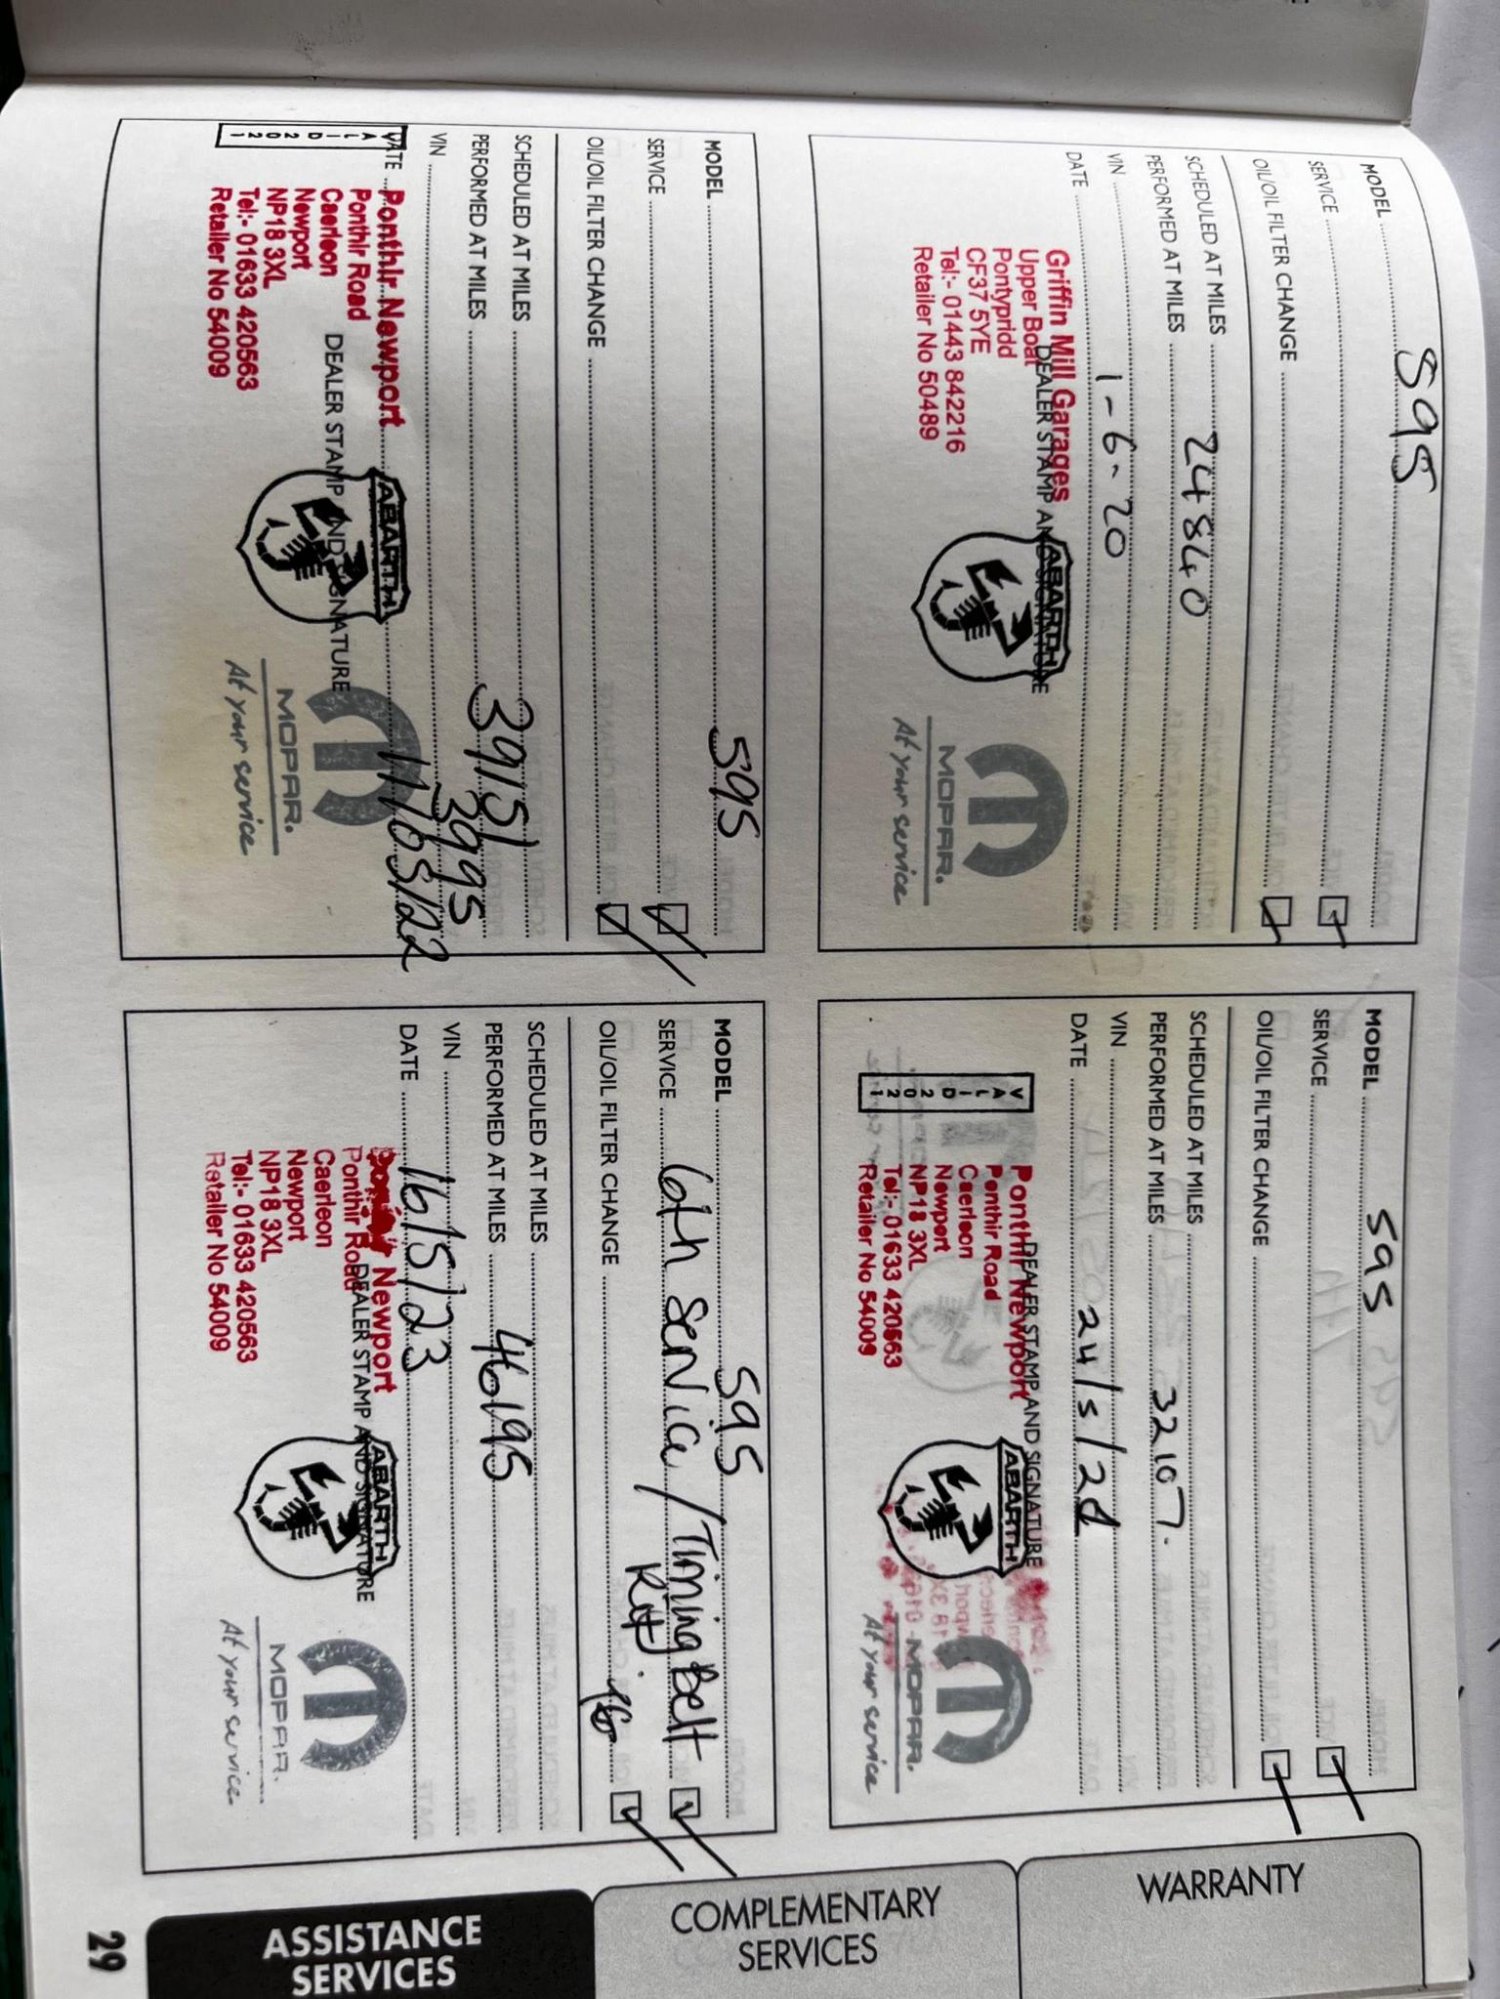 MODEL 595
SERVICE
OIL/OIL FILTER CHANGE
SCHEDULED AT MILES 24840
PERFORMED AT MILES
VIN
DATE 1-6-20
DEALER STAMP AND SIGNATURE
Griffin Mill Garages
Upper Boat
Pontypridd
CF37 5YE
Tel:- 01443 842216
Retailer No 50489
ABARTH
MOPAR.
At your service
MODEL 595
SERVICE
OIL/OIL FILTER CHANGE
SCHEDULED AT MILES
PERFORMED AT MILES 32107.
VIN
DATE 24/5/21
DEALER STAMP AND SIGNATURE
VALID 2021
Ponthir Newport
Ponthir Road
Caerleon
Newport
NP18 3XL
Tel:- 01633 420563
Retailer No 54009
ABARTH
MOPAR.
At your service
MODEL 595
SERVICE
OIL/OIL FILTER CHANGE
SCHEDULED AT MILES 39151
PERFORMED AT MILES 3995
VIN
DATE 17/05/22
DEALER STAMP AND SIGNATURE
VALID 2021
Ponthir Newport
Ponthir Road
Caerleon
Newport
NP18 3XL
Tel:- 01633 420563
Retailer No 54009
ABARTH
MOPAR.
At your service
MODEL 595
SERVICE 6th Service / Timing Belt
Kit
OIL/OIL FILTER CHANGE
SCHEDULED AT MILES
PERFORMED AT MILES 46195
VIN
DATE 16/5/23
DEALER STAMP AND SIGNATURE
Newport
Ponthir Road
Caerleon
Newport
NP18 3XL
Tel:- 01633 420563
Retailer No 54009
ABARTH
MOPAR.
At your service
WARRANTY
COMPLEMENTARY
SERVICES
ASSISTANCE
SERVICES
29